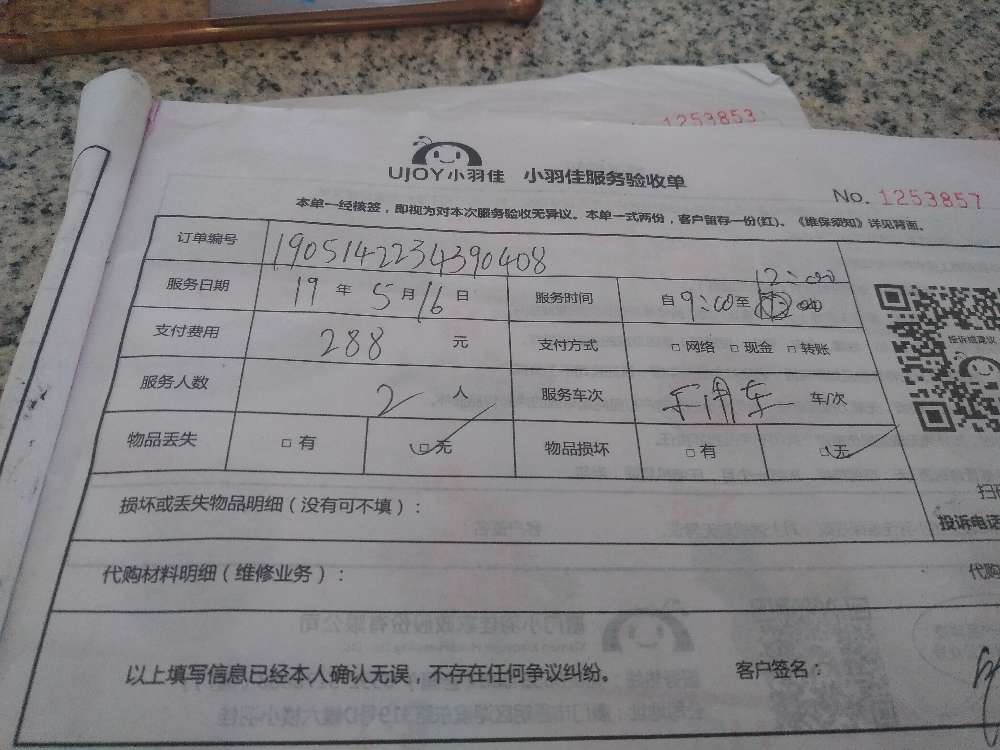 1253853
UJOY小羽佳 小羽佳服务验收单
No. 1253857
本单一经核签，即视为对本次服务验收无异议。本单一式两份，客户留存一份(红)。《维保须知》详见背面。
订单编号 1905142234390408
服务日期 19 年 5 月 16 日 服务时间 自 9:00 至 12:00
支付费用 288 元 支付方式 □ 网络 □ 现金 □ 转账
服务人数 2 人 服务车次 车/次
物品丢失 □ 有 □ 无 物品损坏 □ 有 □ 无
投诉或建议
损坏或丢失物品明细（没有可不填）：
扫
投诉电话
代购材料明细（维修业务）：
代购
以上填写信息已经本人确认无误，不存在任何争议纠纷。 客户签名：